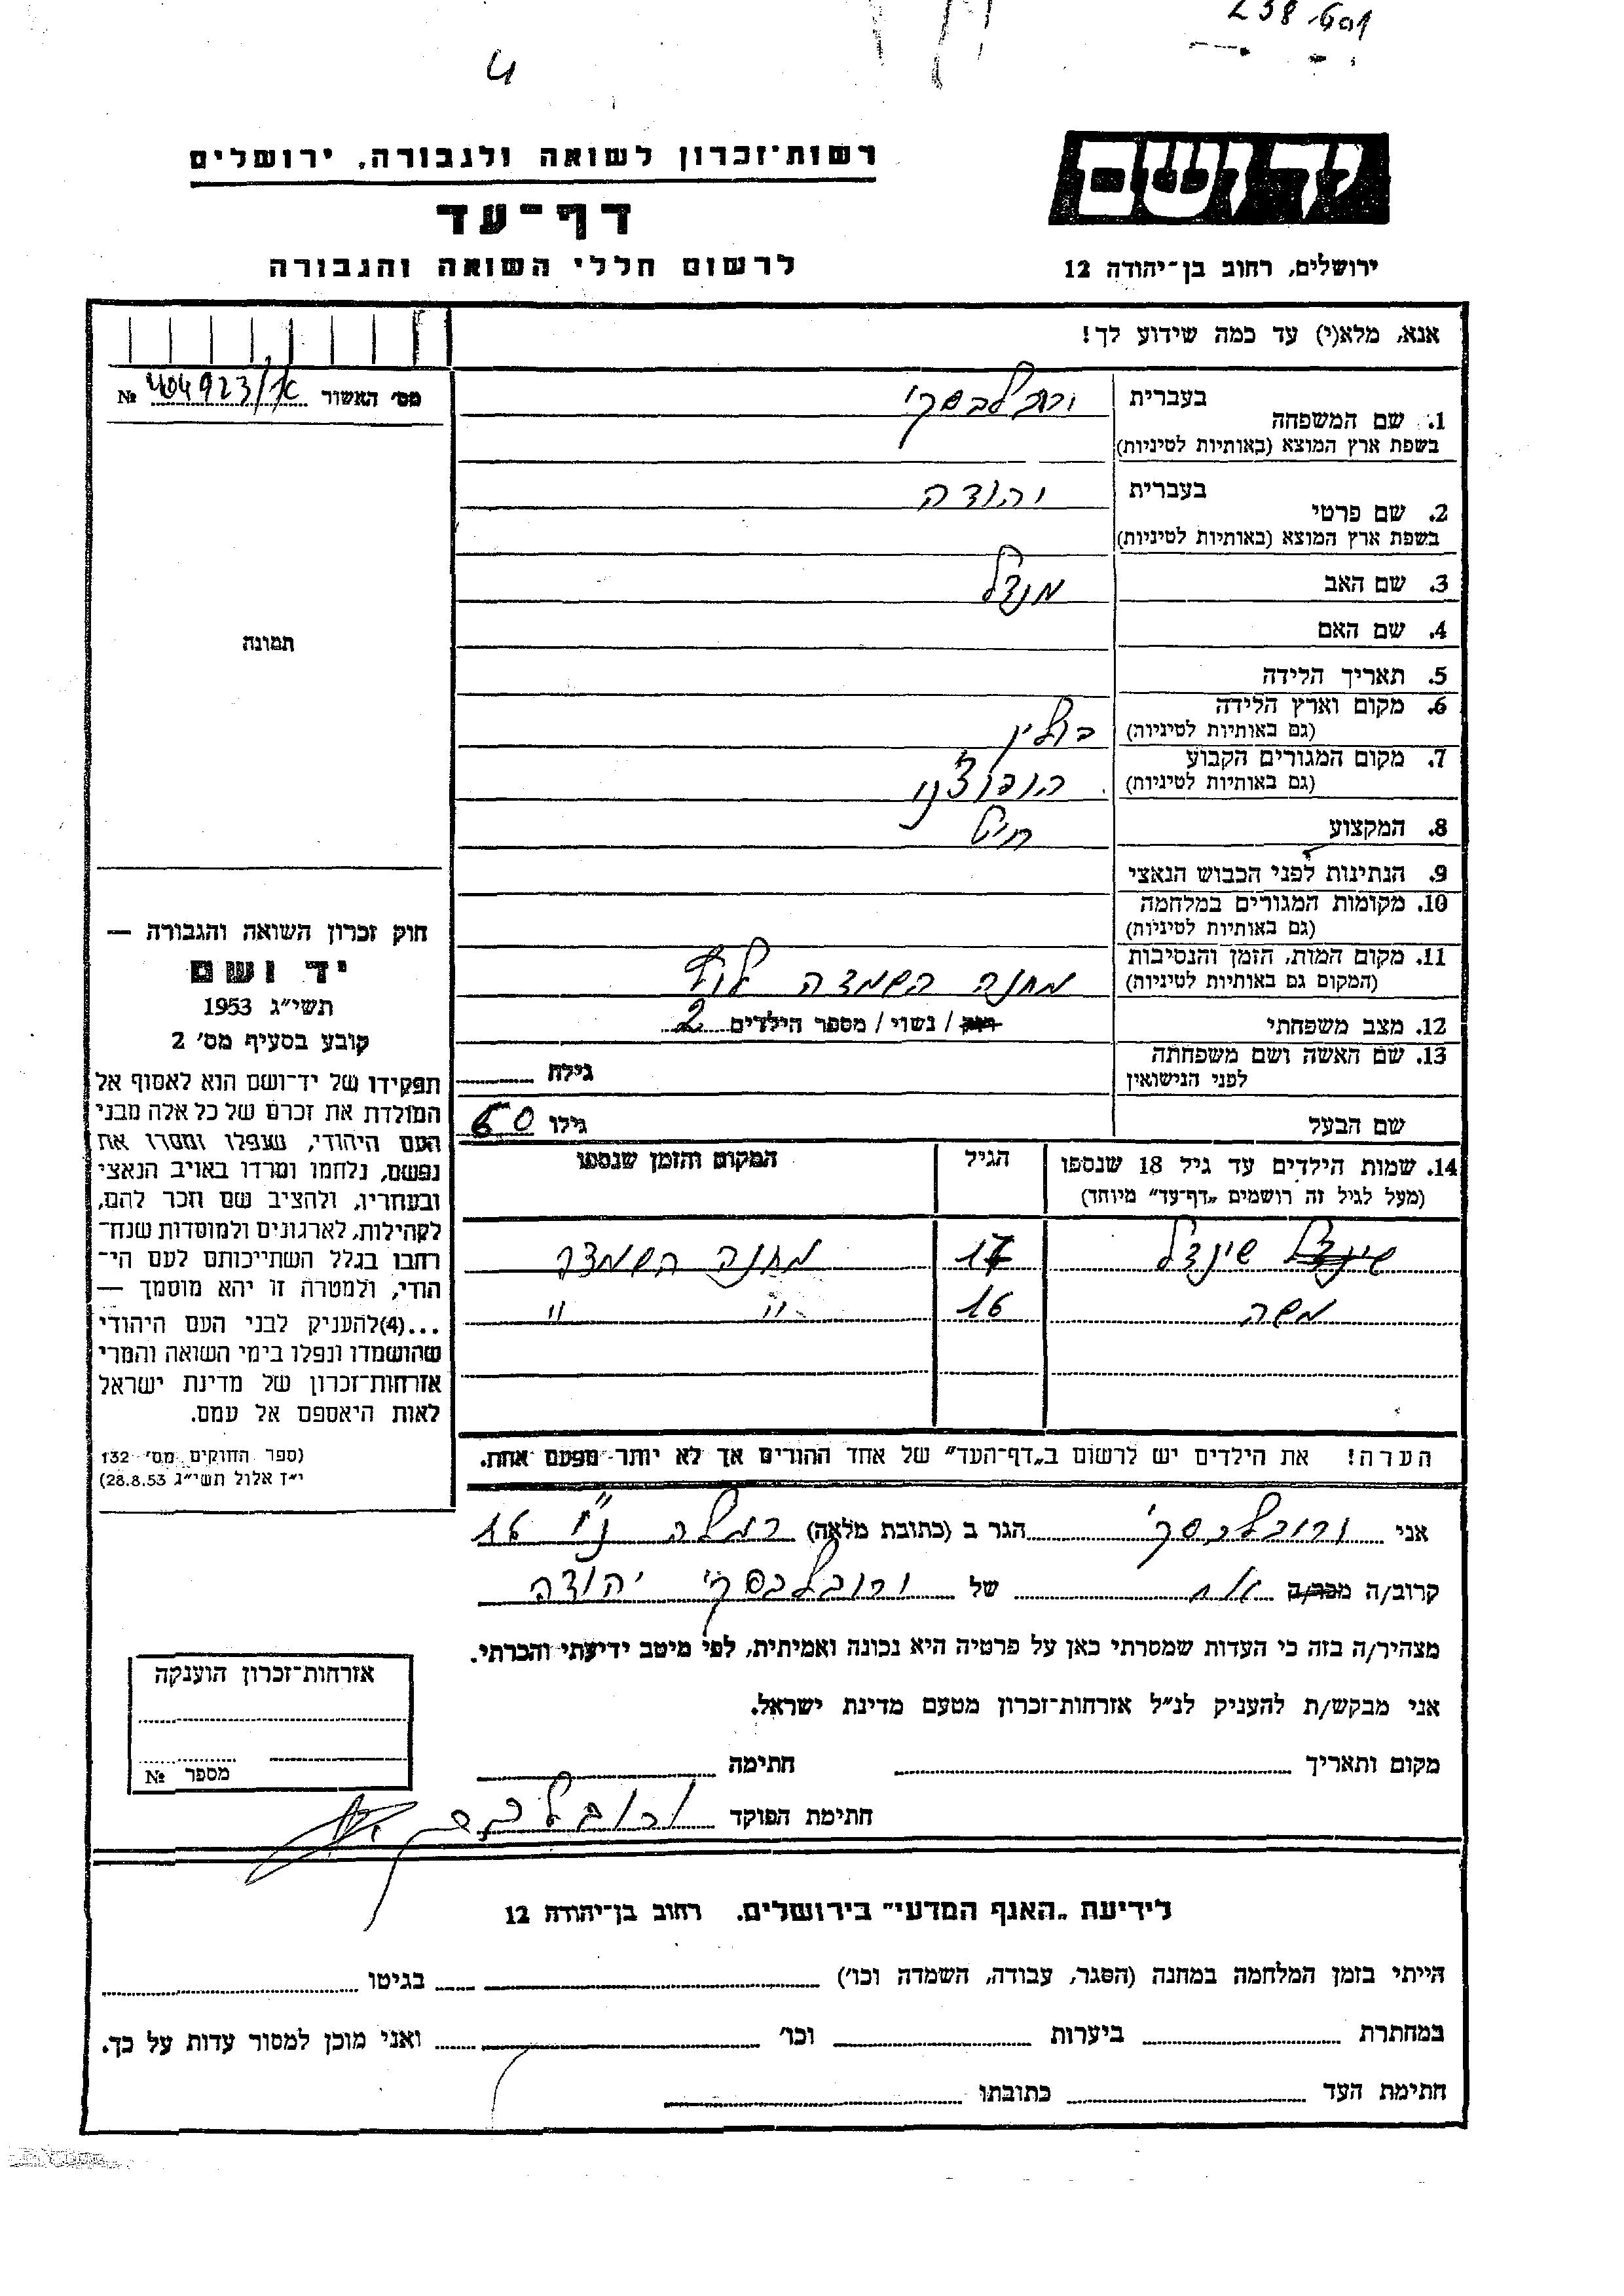 238 601
4
יד ושם
ירושלים, רחוב בן־יהודה 12
רשות־זכרון לשואה ולגבורה, ירושלים
דף־עד
לרשום חללי השואה והגבורה
אנא, מלא(י) עד כמה שידוע לך!
מס' האשור 404923/א №
תמונה
1. שם המשפחה בעברית ורובלבסקי
בשפת ארץ המוצא (באותיות לטיניות)
2. שם פרטי בעברית יהודה
בשפת ארץ המוצא (באותיות לטיניות)
3. שם האב מנדל
4. שם האם
5. תאריך הלידה
6. מקום וארץ הלידה
(גם באותיות לטיניות)
7. מקום המגורים הקבוע
(גם באותיות לטיניות)
8. המקצוע חייט
9. הנתינות לפני הכבוש הנאצי
10. מקומות המגורים במלחמה
(גם באותיות לטיניות)
11. מקום המות, הזמן והנסיבות מחנה השמדה
(המקום גם באותיות לטיניות)
12. מצב משפחתי רווק / נשוי / מספר הילדים 2
13. שם האשה ושם משפחתה גילה
לפני הנישואין
שם הבעל גילו 50
14. שמות הילדים עד גיל 18 שנספו הגיל המקום והזמן שנספו
(מעל לגיל זה רושמים „דף־עד” מיוחד)
שינדל שינדל 17 מחנה השמדה
משה 16 " "
הערה! את הילדים יש לרשום ב„דף־העד” של אחד ההורים אך לא יותר מפעם אחת.
חוק זכרון השואה והגבורה —
יד ושם
תשי״ג 1953
קובע בסעיף מס' 2
תפקידו של יד־ושם הוא לאסוף אל
המולדת את זכרם של כל אלה מבני
העם היהודי, שנפלו ומסרו את
נפשם, נלחמו ומרדו באויב הנאצי
ובעוזריו, ולהציב שם וזכר להם,
לקהילות, לארגונים ולמוסדות שנח־
רבו בגלל השתייכותם לעם הי־
הודי, ולמטרה זו יהא מוסמך —
...(4) להעניק לבני העם היהודי
שהושמדו ונפלו בימי השואה והמרי
אזרחות־זכרון של מדינת ישראל
לאות היאספם אל עמם.
(ספר החוקים מס' 132
י״ז אלול תשי״ג 28.8.53)
אני ורובלבסקי הגר ב (כתובת מלאה) רמלה 16
קרוב/ה מכר/ה אח של ורובלבסקי יהודה
מצהיר/ה בזה כי העדות שמסרתי כאן על פרטיה היא נכונה ואמיתית, לפי מיטב ידיעתי והכרתי.
אני מבקש/ת להעניק לנ״ל אזרחות־זכרון מטעם מדינת ישראל.
מקום ותאריך חתימה
חתימת הפוקד ורובלבסקי
אזרחות־זכרון הוענקה
מספר №
לידיעת „האגף המדעי” בירושלים, רחוב בן־יהודה 12
הייתי בזמן המלחמה במחנה (הסגר, עבודה, השמדה וכו') בגיטו
במחתרת ביערות וכו' ואני מוכן למסור עדות על כך.
חתימת העד כתובתו